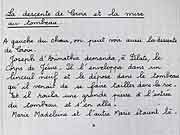 La descente de Croix et la mise
au tombeau.
A gauche du chœur, on peut voir aussi la descente
de Croix.
Joseph d'Arimathie demanda, à Pilate, le
Corps de Jésus. Il l'enveloppa dans un
linceul neuf et le déposa dans le tombeau
qu'il venait de se faire tailler dans le roc.
Et il roula une grande pierre à l'entrée
du tombeau et s'en alla.
Marie Madeleine et l'autre Marie étaient là